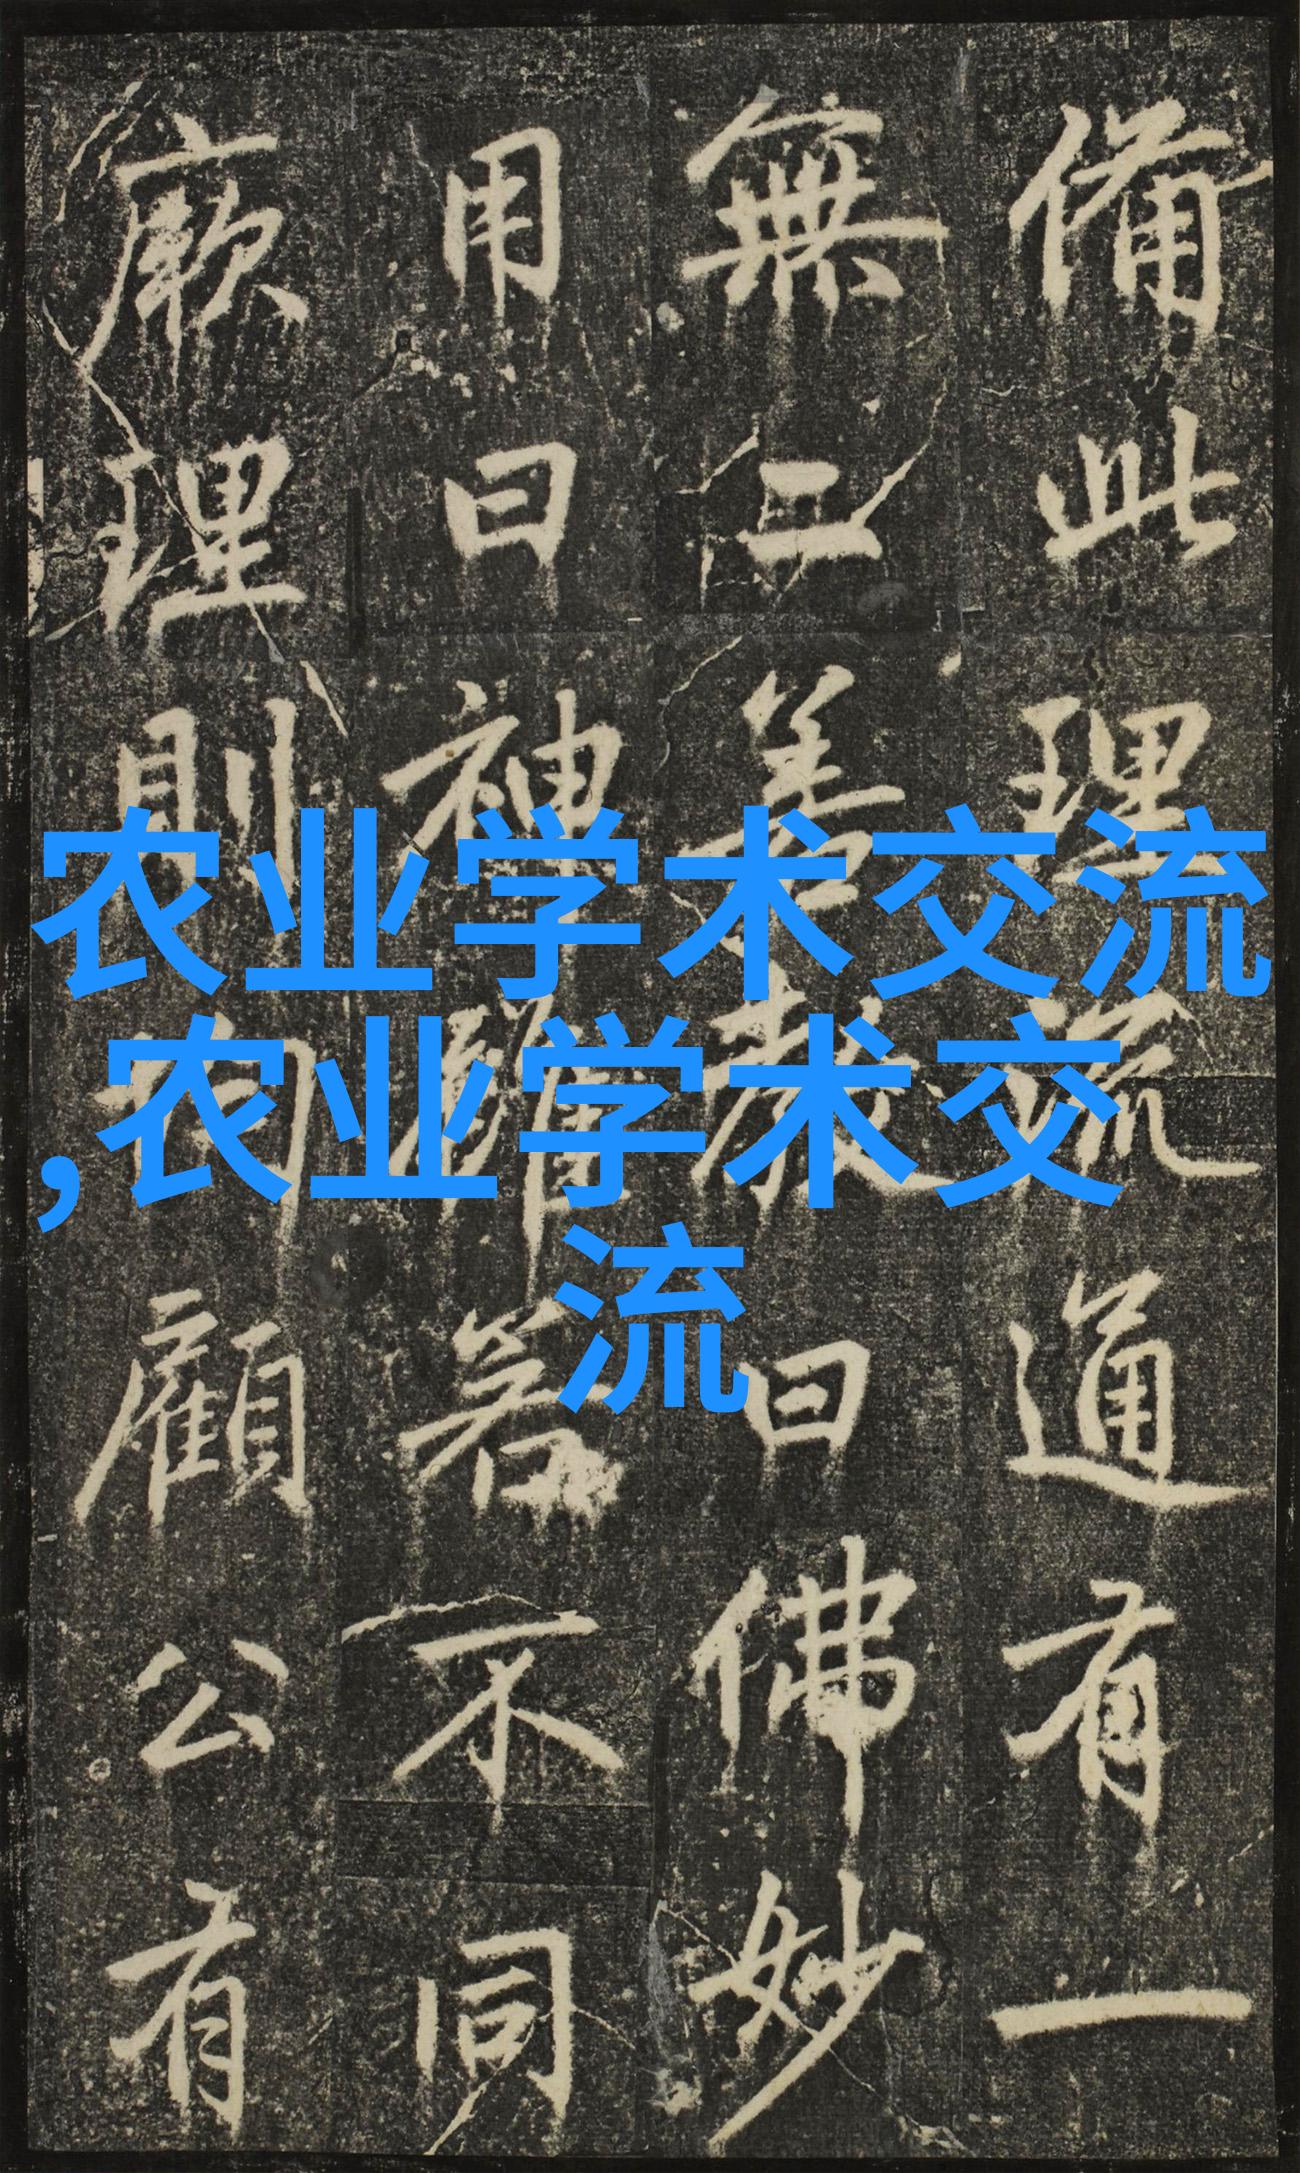 农业学术交流
,农业学术交
流
備此理流通有一
無二善教曰佛妙
用曰神若不同
厥理則顧公有